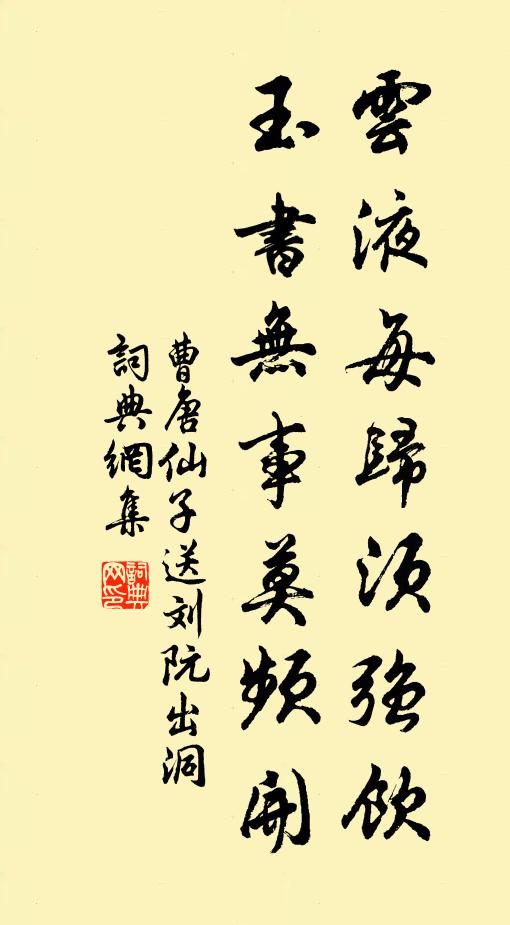 雲液每歸須強飲
玉書無事莫頻開
曹唐仙子送刘阮出洞
詞典網集
詞典网印